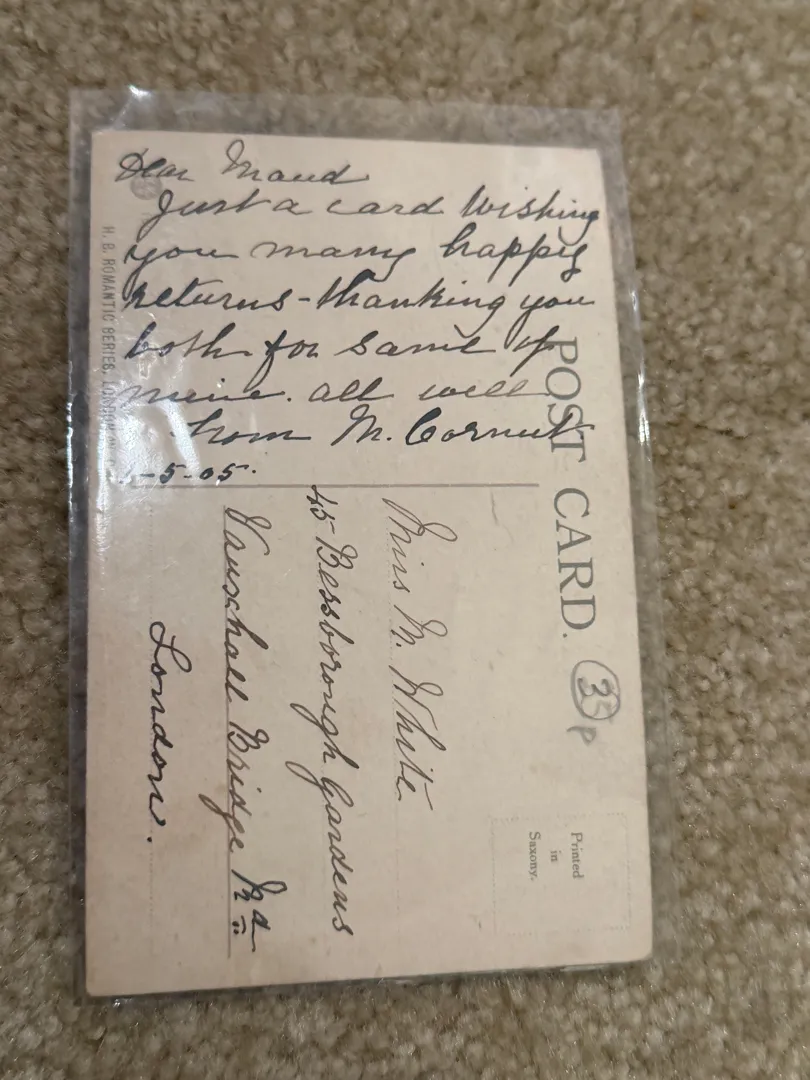 Dear Maud
Just a card wishing
you many happy
returns - thanking you
both for same of
mine. all well
from M.
-5-05.
POST CARD.
35p
Printed
in
Saxony.
Miss M. White
45 Bessborough Gardens
Vauxhall Bridge Rd
London.
H. B. ROMANTIC SERIES, LONDON